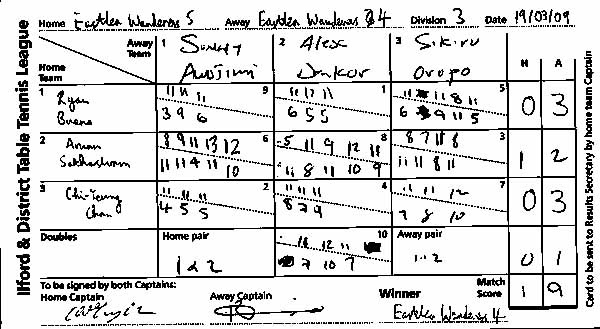 Ilford & District Table Tennis League
Home Eastlea Wanderers 5 Away Eastlea Wanderers 4 Division 3 Date 19/03/09
Away Team 1 Sunday 2 Alex 3 Sikiru H A
Home Team Oropo
1 Ryan 11 11 11 9 11 12 11 1 11 11 8 11 5 0 3
3 9 6 6 5 5 6 9 11 5
2 8 9 11 13 12 6 5 11 9 12 11 8 8 7 11 8 3 1 2
11 11 4 11 10 11 8 11 10 9 11 11 8 11
3 Chi-Teung 11 11 11 2 11 11 11 4 11 11 12 7 0 3
Chan 4 5 5 8 7 9 7 8 10
Doubles Home pair 10 Away pair
11 12 11
1 & 2 7 10 7 1 2 0 1
To be signed by both Captains:
Home Captain Away Captain Winner Match Score 1 9
Eastlea Wanderers 4
Card to be sent to Results Secretary by home team Captain